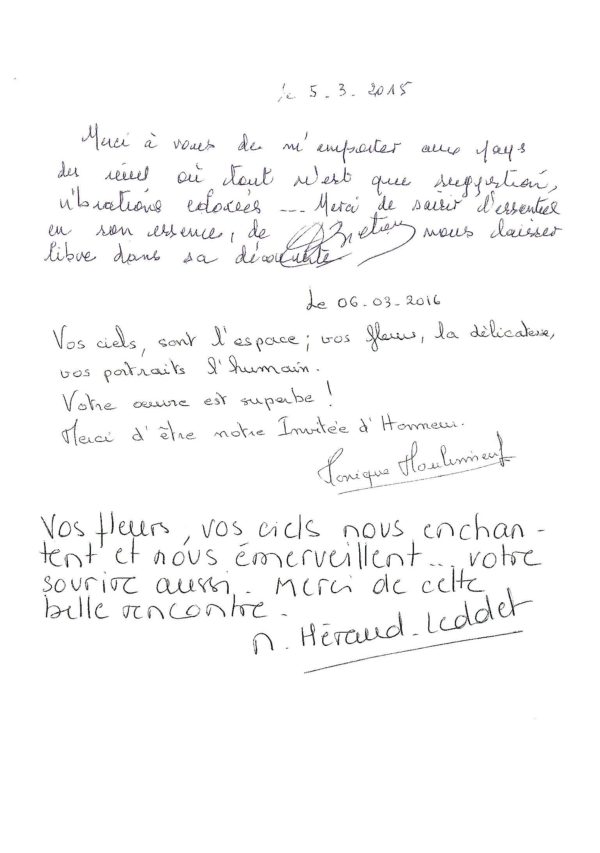 le 5 - 3 - 2015
Merci à vous de m'emporter aux pays
du réel où tout n'est que suggestion,
vibrations colorées --- Merci de saisir l'essentiel
en son essence, de nous laisser
libre dans sa découverte
Le 06-03-2016
Vos ciels, sont l'espace ; vos fleurs, la délicatesse,
vos portraits l'humain.
Votre œuvre est superbe !
Merci d'être notre Invitée d'Honneur.
Monique Moulinneuf
Vos fleurs, vos ciels nous enchan-
tent et nous émerveillent... votre
sourire aussi. Merci de cette
belle rencontre.
N. Héraud-Leddet